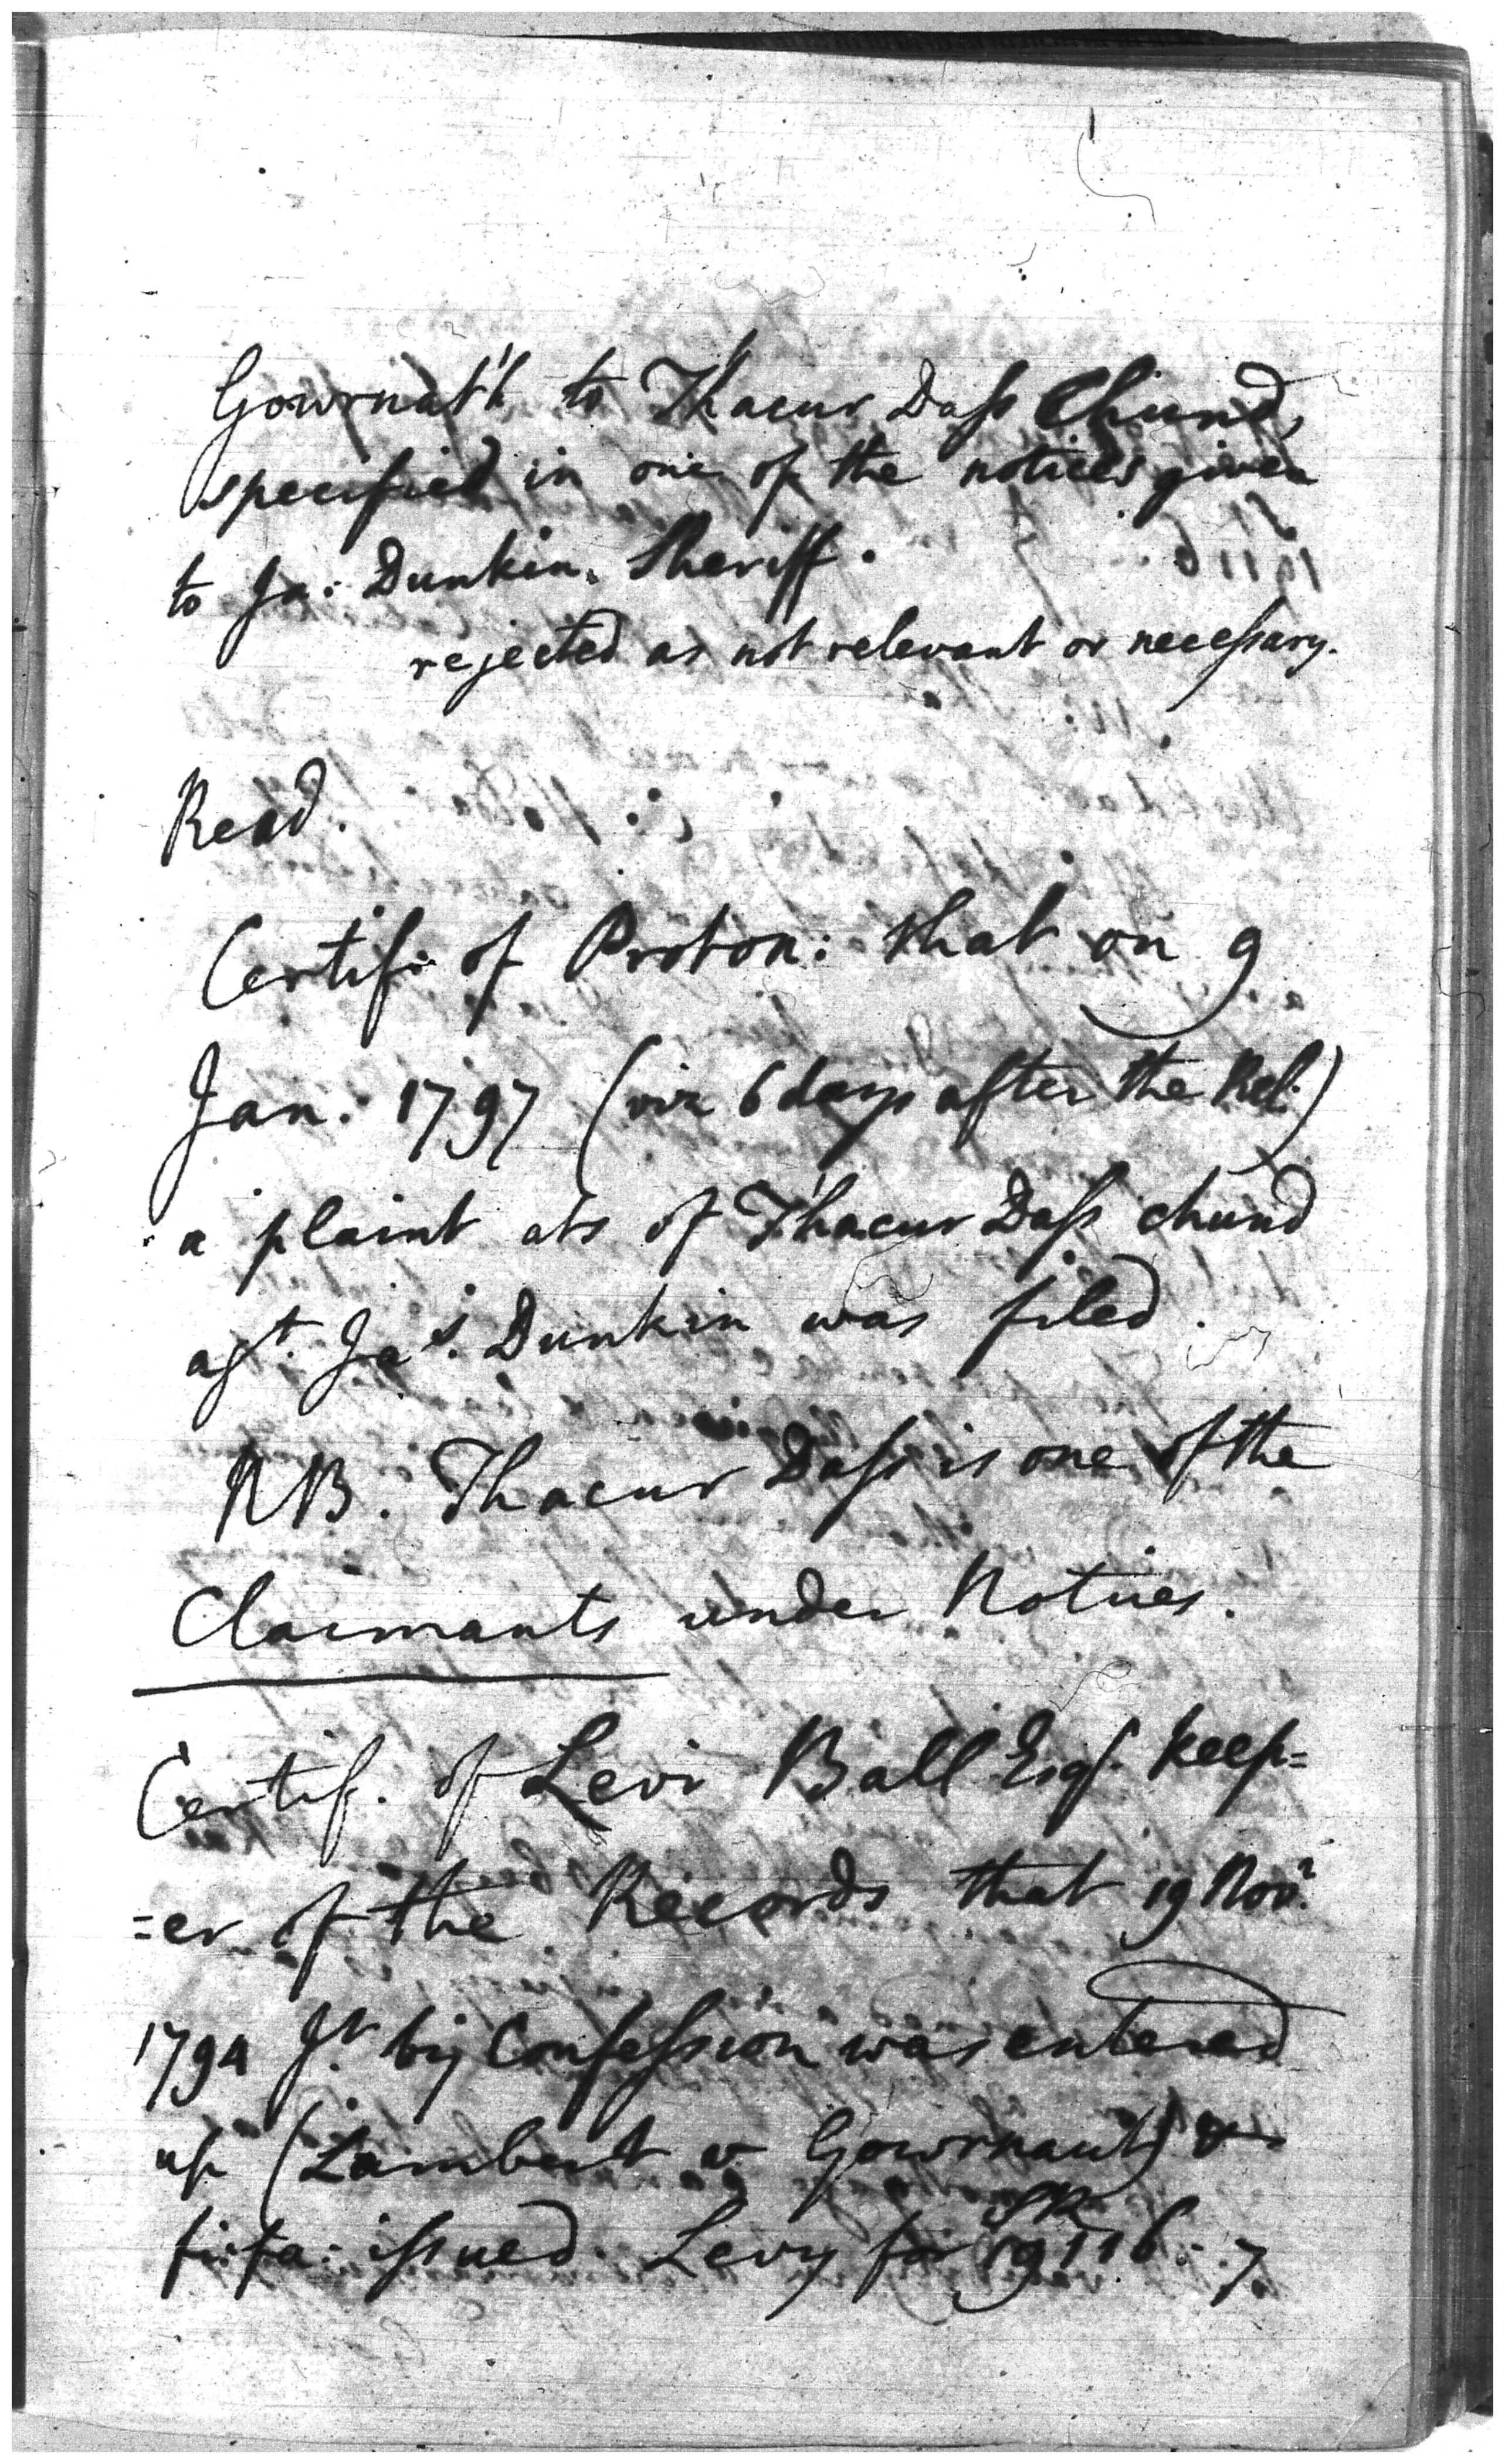 Gowrnat'h to Thacur Dass Chund,
specified in one of the notices given
to Ja: Dunkin. Sheriff.
rejected as not relevant or necessary.
Read.
Certif: of Proton: that on 9
Jan. 1797 (viz 6 days after the Rel:)
a plaint ats of T'hacur Dass chund
agt. Jas. Dunkin was filed.
NB. Thacur Dass is one of the
Claimants under Notices.
Certif. of Levi Ball Esq. keep=
=er of the Records that 19 Novr.
1794 Jt. by Confession was entered
up (Lambert v Gowrnaut) &
fi: fa: issued. Levy for SRs 19116. 7